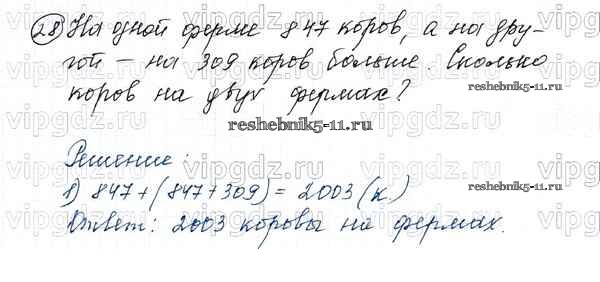 28) На одной ферме 847 коров, а на дру-
гой – на 309 коров больше. Сколько
коров на двух фермах?
reshebnik5-11.ru
Решение:
1) 847+(847+309)=2003(к.)
reshebnik5-11.ru
Ответ: 2003 коровы на фермах.
vipgdz.ru